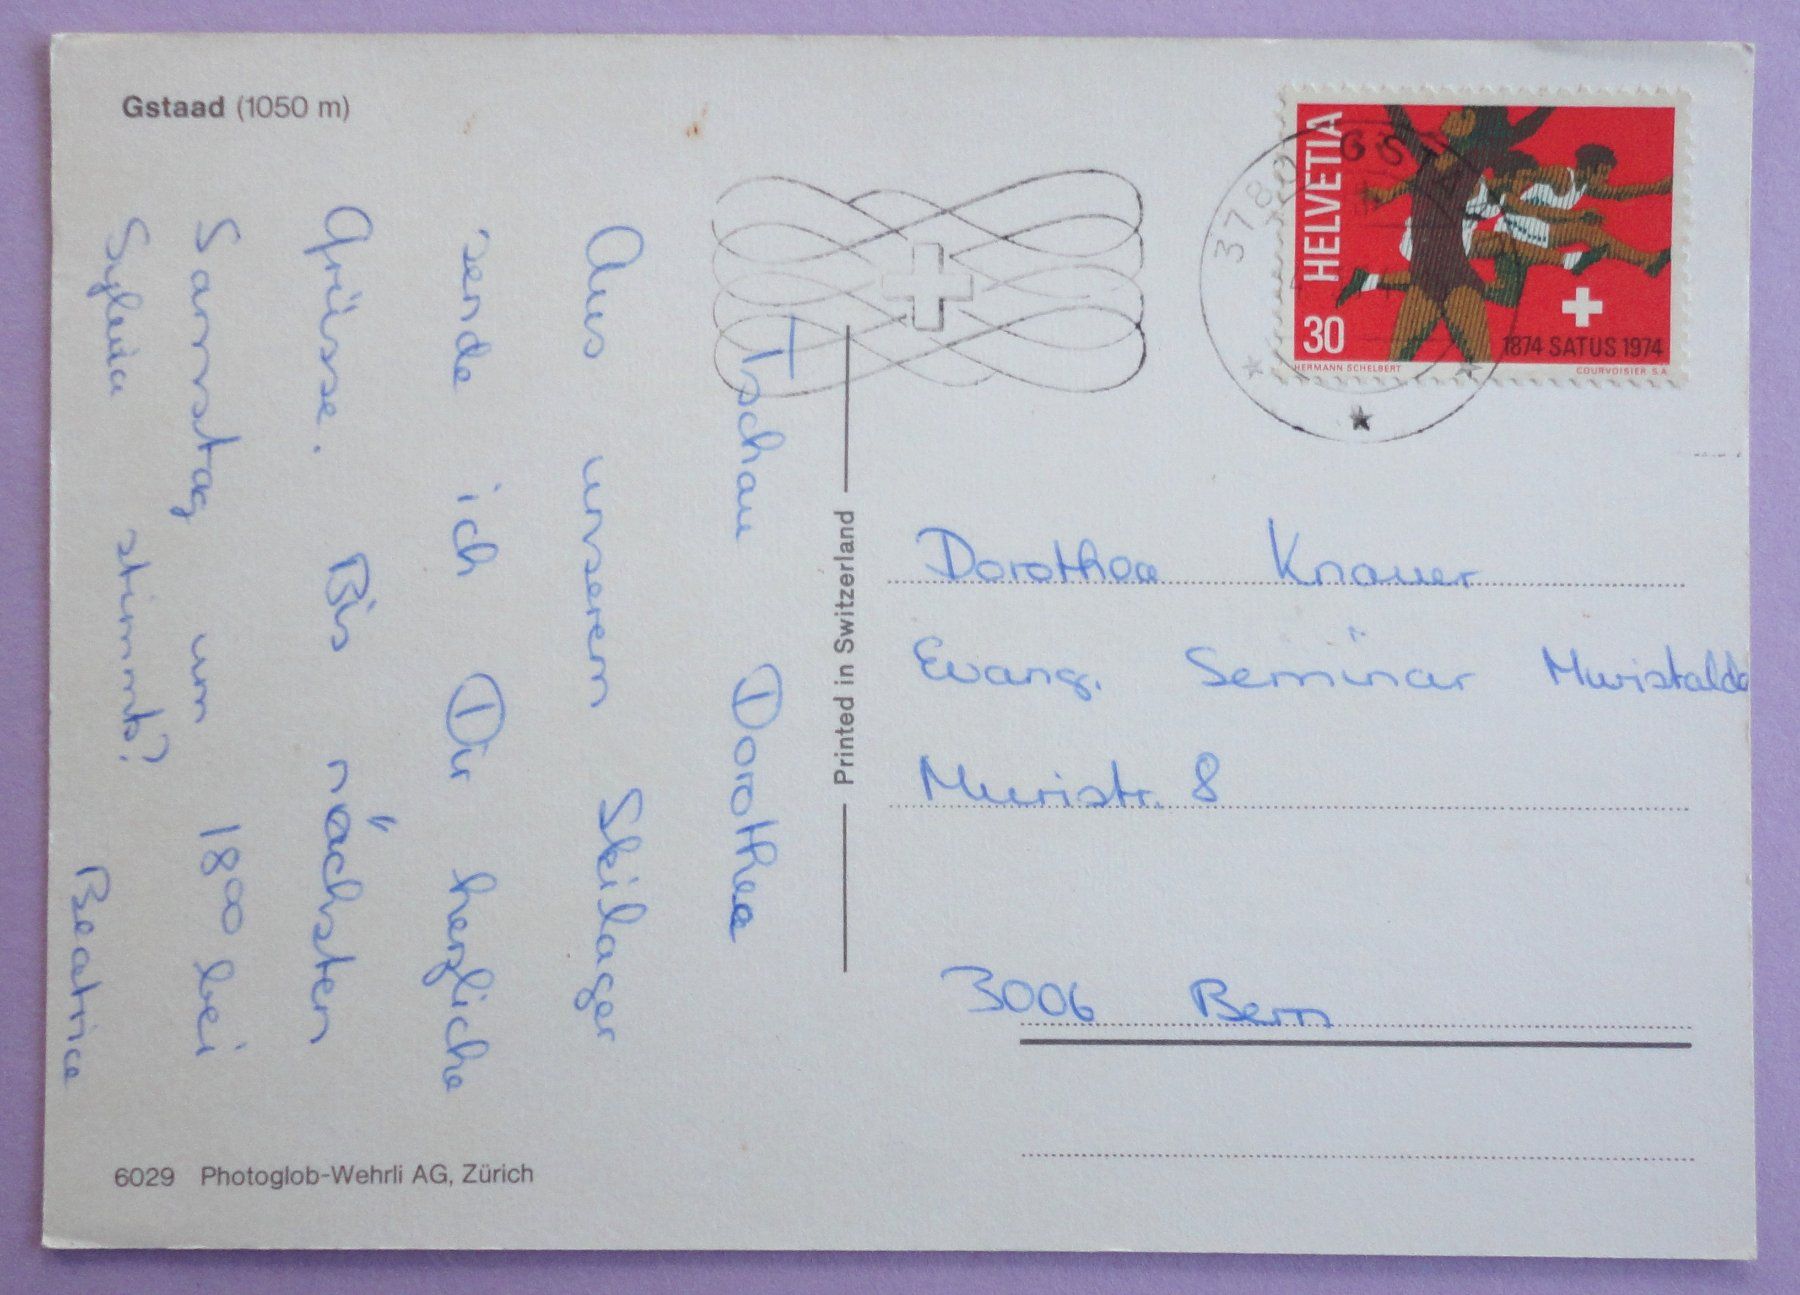 Gstaad (1050 m)
Tschau Dorothea
Aus unserem Skilager
sende ich Dir herzliche
Grüsse. Bis nächsten
Samstag um 1800 bei
Sylvia stimmts?
Beatrice
6029 Photoglob-Wehrli AG, Zürich
Printed in Switzerland
3780 GSTAAD
HELVETIA
30
1874 SATUS 1974
HERMANN SCHELBERT
COURVOISIER S.A.
Dorothea Knauer
Evang. Seminar Muristalde
Muristr. 8
3006 Bern